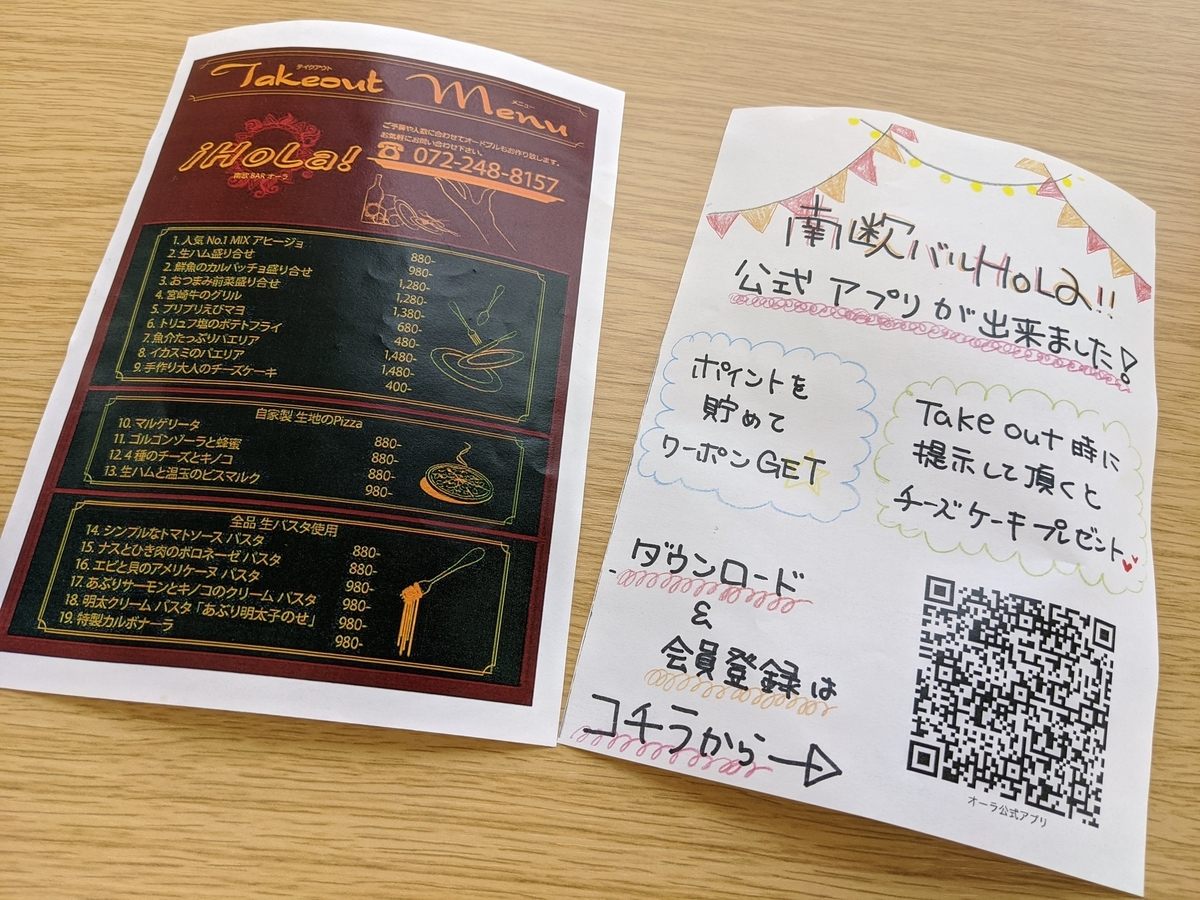 テイクアウト
メニュー
Takeout Menu
¡HoLa!
南欧 BAR オーラ
ご予算や人数に合わせてオードブルもお作り致します。
お気軽にお問い合わせ下さい。
☎ 072-248-8157
1. 人気 No.1 MIX アヒージョ 880-
2. 生ハム盛り合せ 980-
2. 鮮魚のカルパッチョ盛り合せ 1,280-
3. おつまみ前菜盛り合せ 1,280-
4. 宮崎牛のグリル 1,380-
5. プリプリえびマヨ 680-
6. トリュフ塩のポテトフライ 480-
7. 魚介たっぷりパエリア 1,480-
8. イカスミのパエリア 1,480-
9. 手作り大人のチーズケーキ 400-
自家製 生地のPizza
10. マルゲリータ 880-
11. ゴルゴンゾーラと蜂蜜 880-
12. 4種のチーズとキノコ 880-
13. 生ハムと温玉のビスマルク 980-
全品 生パスタ使用
14. シンプルなトマトソース パスタ 880-
15. ナスとひき肉のボロネーゼ パスタ 880-
16. エビと貝のアメリケーヌ パスタ 980-
17. あぶりサーモンとキノコのクリーム パスタ 980-
18. 明太クリーム パスタ「あぶり明太子のせ」 980-
19. 特製カルボナーラ 980-
南欧バルHoLa!!
公式アプリが出来ました!
ポイントを
貯めて
クーポンGET
Take out 時に
提示して頂くと
チーズケーキプレゼント
ダウンロード
&
会員登録は
コチラから→
オーラ公式アプリ